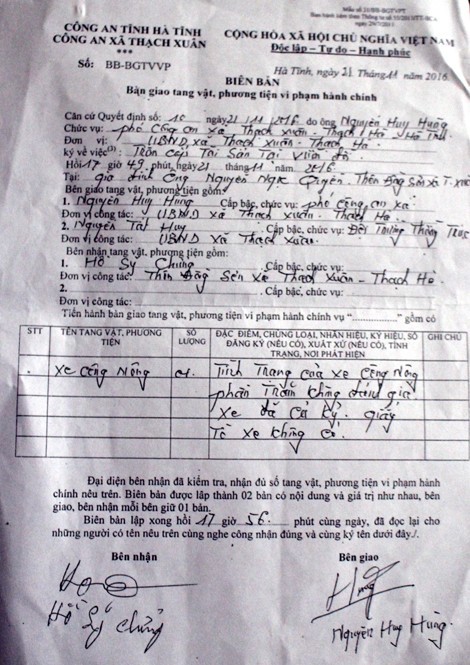 Mẫu số 21/BB-BGTVPT
CÔNG AN TỈNH HÀ TĨNH
CÔNG AN XÃ THẠCH XUÂN
***
Số: BB-BGTVVP
CỘNG HÒA XÃ HỘI CHỦ NGHĨA VIỆT NAM
Độc lập – Tự do – Hạnh phúc
Hà Tĩnh, ngày 21 Tháng 11 năm 2016
BIÊN BẢN
Bàn giao tang vật, phương tiện vi phạm hành chính
Căn cứ Quyết định số: 10 ngày 21/11/2016 do ông Nguyễn Huy Hùng
Chức vụ: phó Công an xã Thạch Xuân - Thạch Hà Hà Tĩnh
Đơn vị: UBND xã Thạch Xuân - Thạch Hà
ký về việc(3): Trộm Cắp Tài Sản Tại Vườn đồi
Hồi 17 giờ 49 phút, ngày 21 tháng 11 năm 2016
Tại: gia đình Ông Nguyễn Ngọc Quyền Thôn Đồng Sơn xã T-Xuân
Bên giao tang vật, phương tiện gồm:
1. Nguyễn Huy Hùng Cấp bậc, chức vụ: phó công an xã
Đơn vị công tác: UBND xã Thạch Xuân - Thạch Hà
2. Nguyễn Tất Huy Cấp bậc, chức vụ: Đội Trưởng
Đơn vị công tác: UBND xã Thạch Xuân
Bên nhận tang vật, phương tiện gồm:
1. Hồ Sỹ Chung Cấp bậc, chức vụ:
Đơn vị công tác: Thôn Đồng Sơn xã Thạch Xuân - Thạch Hà
2. Cấp bậc, chức vụ:
Đơn vị công tác:
Tiến hành bàn giao tang vật, phương tiện vi phạm hành chính vụ “..................” gồm có
STT TÊN TANG VẬT, PHƯƠNG TIỆN SỐ LƯỢNG ĐẶC ĐIỂM, CHỦNG LOẠI, NHÃN HIỆU, KÝ HIỆU, SỐ ĐĂNG KÝ (NẾU CÓ), XUẤT XỨ (NẾU CÓ), TÌNH TRẠNG, NƠI PHÁT HIỆN GHI CHÚ
Xe Công Nông 01 Tình Trạng của xe Công Nông
phần Trăm không đánh giá
Xe đã cũ kỹ. giấy
Tờ xe không có.
Đại diện bên nhận đã kiểm tra, nhận đủ số tang vật, phương tiện vi phạm hành
chính nêu trên. Biên bản được lập thành 02 bản có nội dung và giá trị như nhau, bên
giao, bên nhận mỗi bên giữ 01 bản.
Biên bản lập xong hồi 17 giờ 56 phút cùng ngày, đã đọc lại cho
những người có tên nêu trên cùng nghe công nhận đúng và cùng ký tên dưới đây./.
Bên nhận
Bên giao
Hồ Sỹ Chung
Nguyễn Huy Hùng